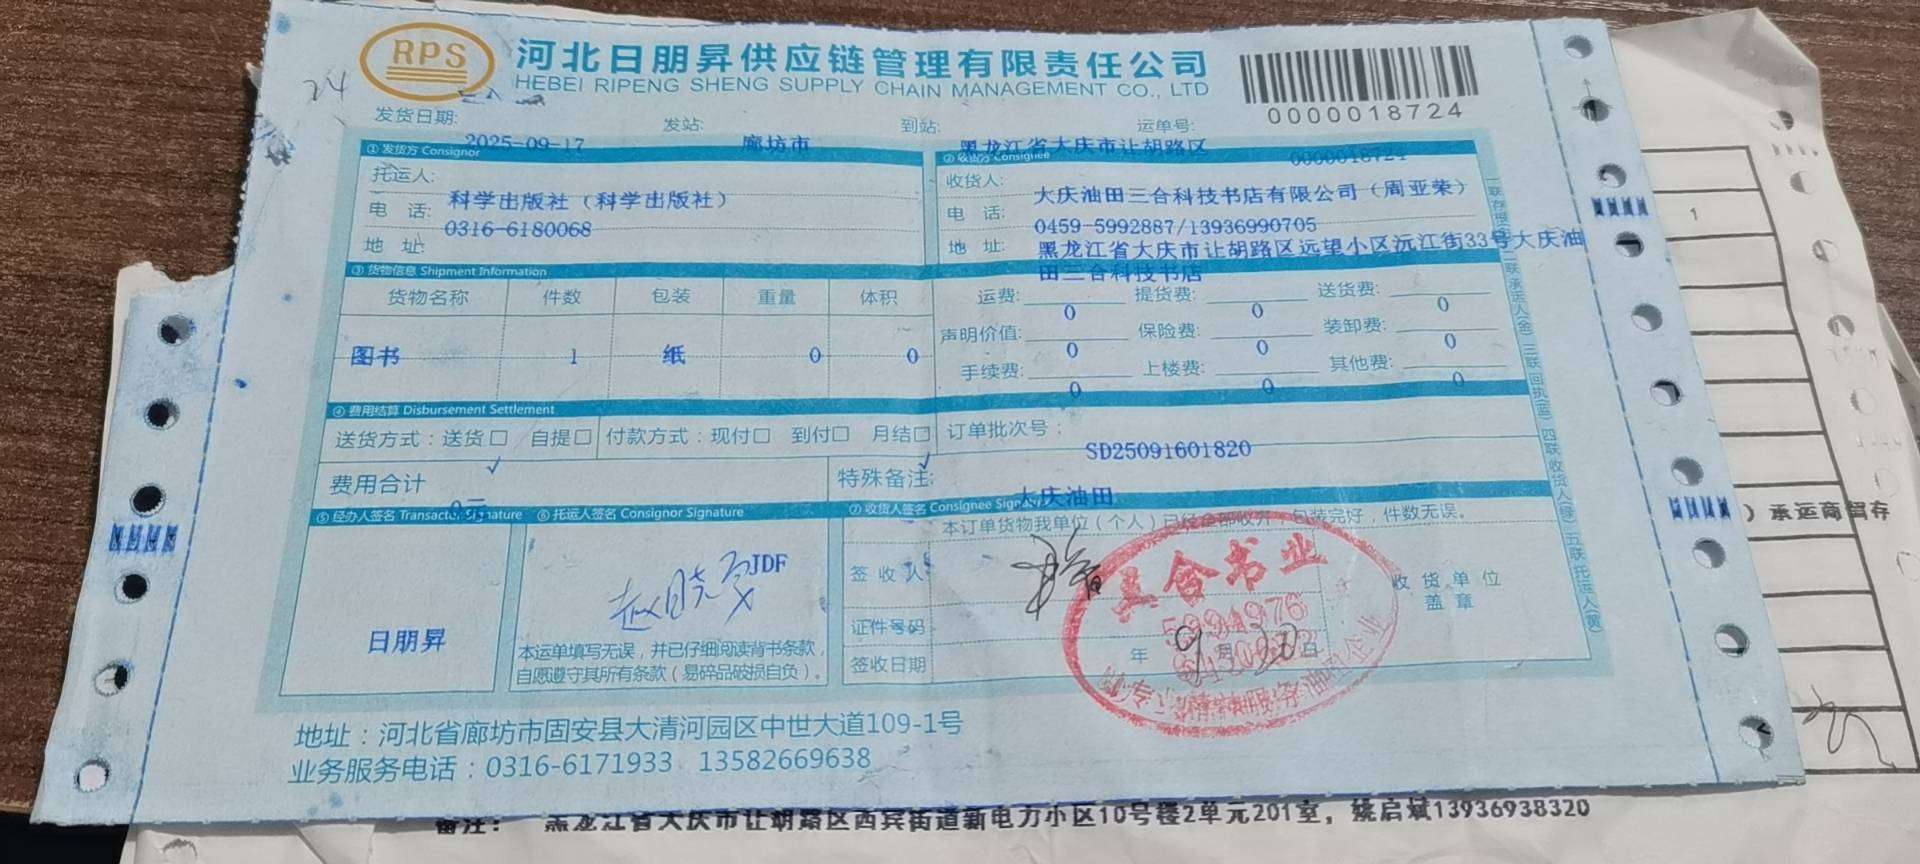 RPS
河北日朋昇供应链管理有限责任公司
HEBEI RIPENG SHENG SUPPLY CHAIN MANAGEMENT CO., LTD
0000018724
24
发货日期: 2025-09-17 发站: 廊坊市 到站: 黑龙江省大庆市让胡路区 运单号: 0000018724
① 发货方 Consignor
托运人: 科学出版社（科学出版社）
电 话: 0316-6180068
地 址:
② 收货方 Consignee
收货人: 大庆油田三合科技书店有限公司（周亚荣）
电 话: 0459-5992887/13936990705
地 址: 黑龙江省大庆市让胡路区远望小区沅江街33号大庆油
田三合科技书店
③ 货物信息 Shipment Information
货物名称 件数 包装 重量 体积
图书 1 纸 0 0
运费: 0 提货费: 0 送货费: 0
声明价值: 0 保险费: 0 装卸费: 0
手续费: 0 上楼费: 0 其他费: 0
④ 费用结算 Disbursement Settlement
送货方式：送货□ 自提□ 付款方式：现付□ 到付□ 月结□ 订单批次号： SD25091601820
✓ ✓
费用合计 0元 特殊备注: 大庆油田
⑤ 经办人签名 Transactor Signature
日朋昇
⑥ 托运人签名 Consignor Signature
JDF
本运单填写无误，并已仔细阅读背书条款，
自愿遵守其所有条款（易碎品破损自负）。
⑦ 收货人签名 Consignee Signature
本订单货物我单位（个人）已经全部收齐，包装完好，件数无误。
签 收 人
证件号码
签收日期 年 9 月 20 日
收 货 单 位
盖 章
三合书业
5994976
地址：河北省廊坊市固安县大清河园区中世大道109-1号
业务服务电话：0316-6171933 13582669638
二联承运人(金) 三联回执(蓝) 四联收货人(绿) 五联托运人(黄)
1
）承运商留存
备注： 黑龙江省大庆市让胡路区西宾街道新电力小区10号楼2单元201室，姚启斌13936938320